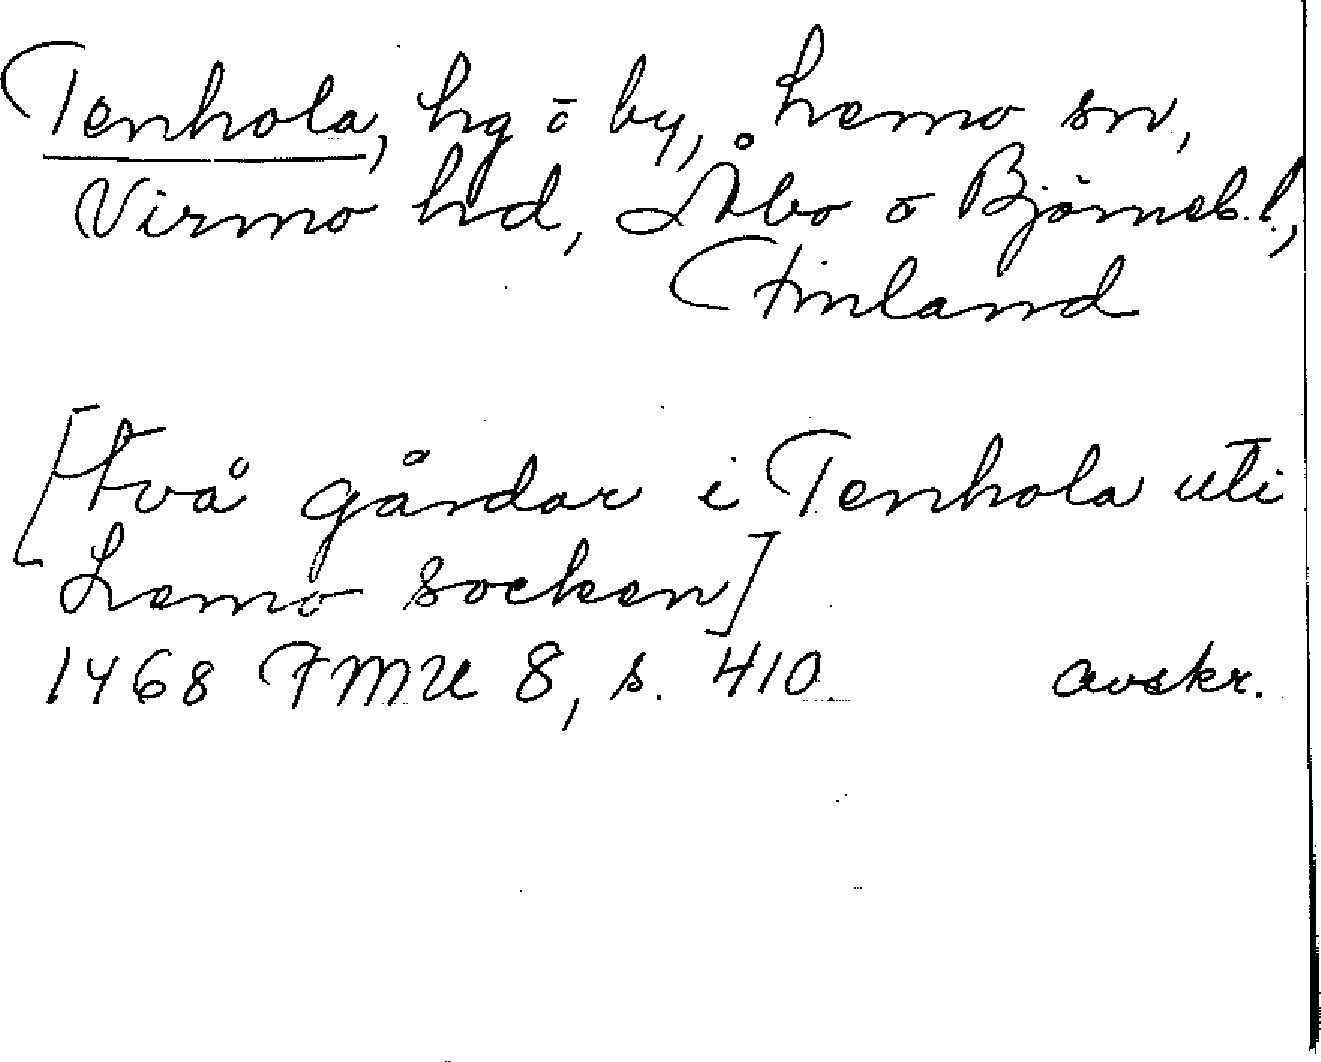 Tenhola, hg o by, Lemo sn,
Virmo hd, Åbo o Björneb. l,
Finland
[två gårdar i Tenhola uti
Lemo socken]
1468 FMU 8, s. 410 avskr.